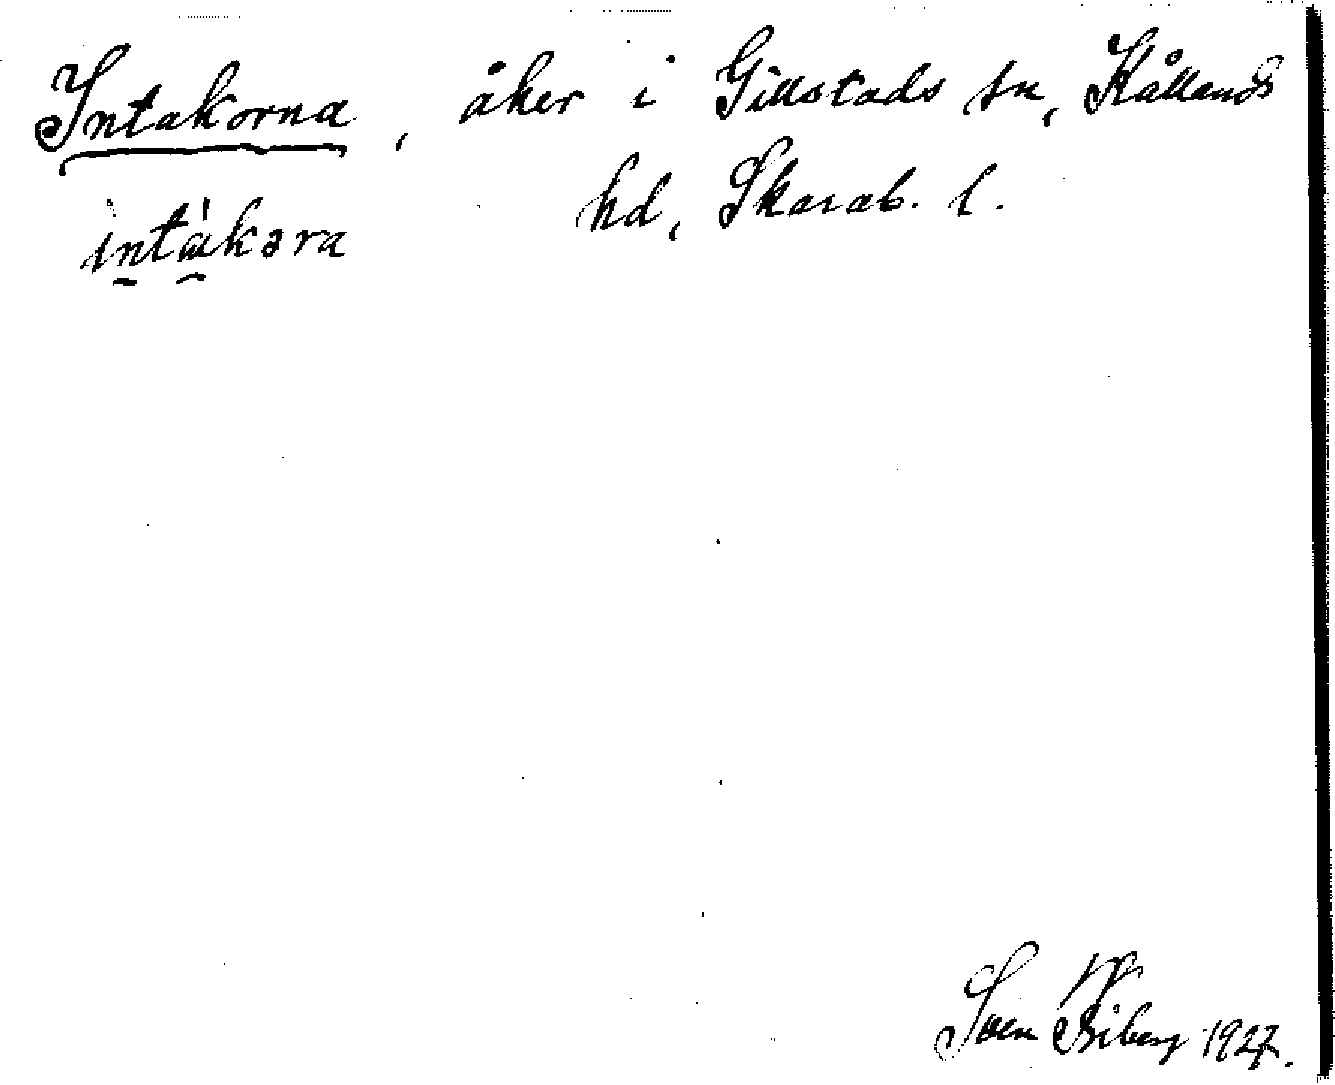 Intakorna, åker i Gillstads sn, Kållands
intákəra hd, Skarab. l.
Sven Friberg 1927.